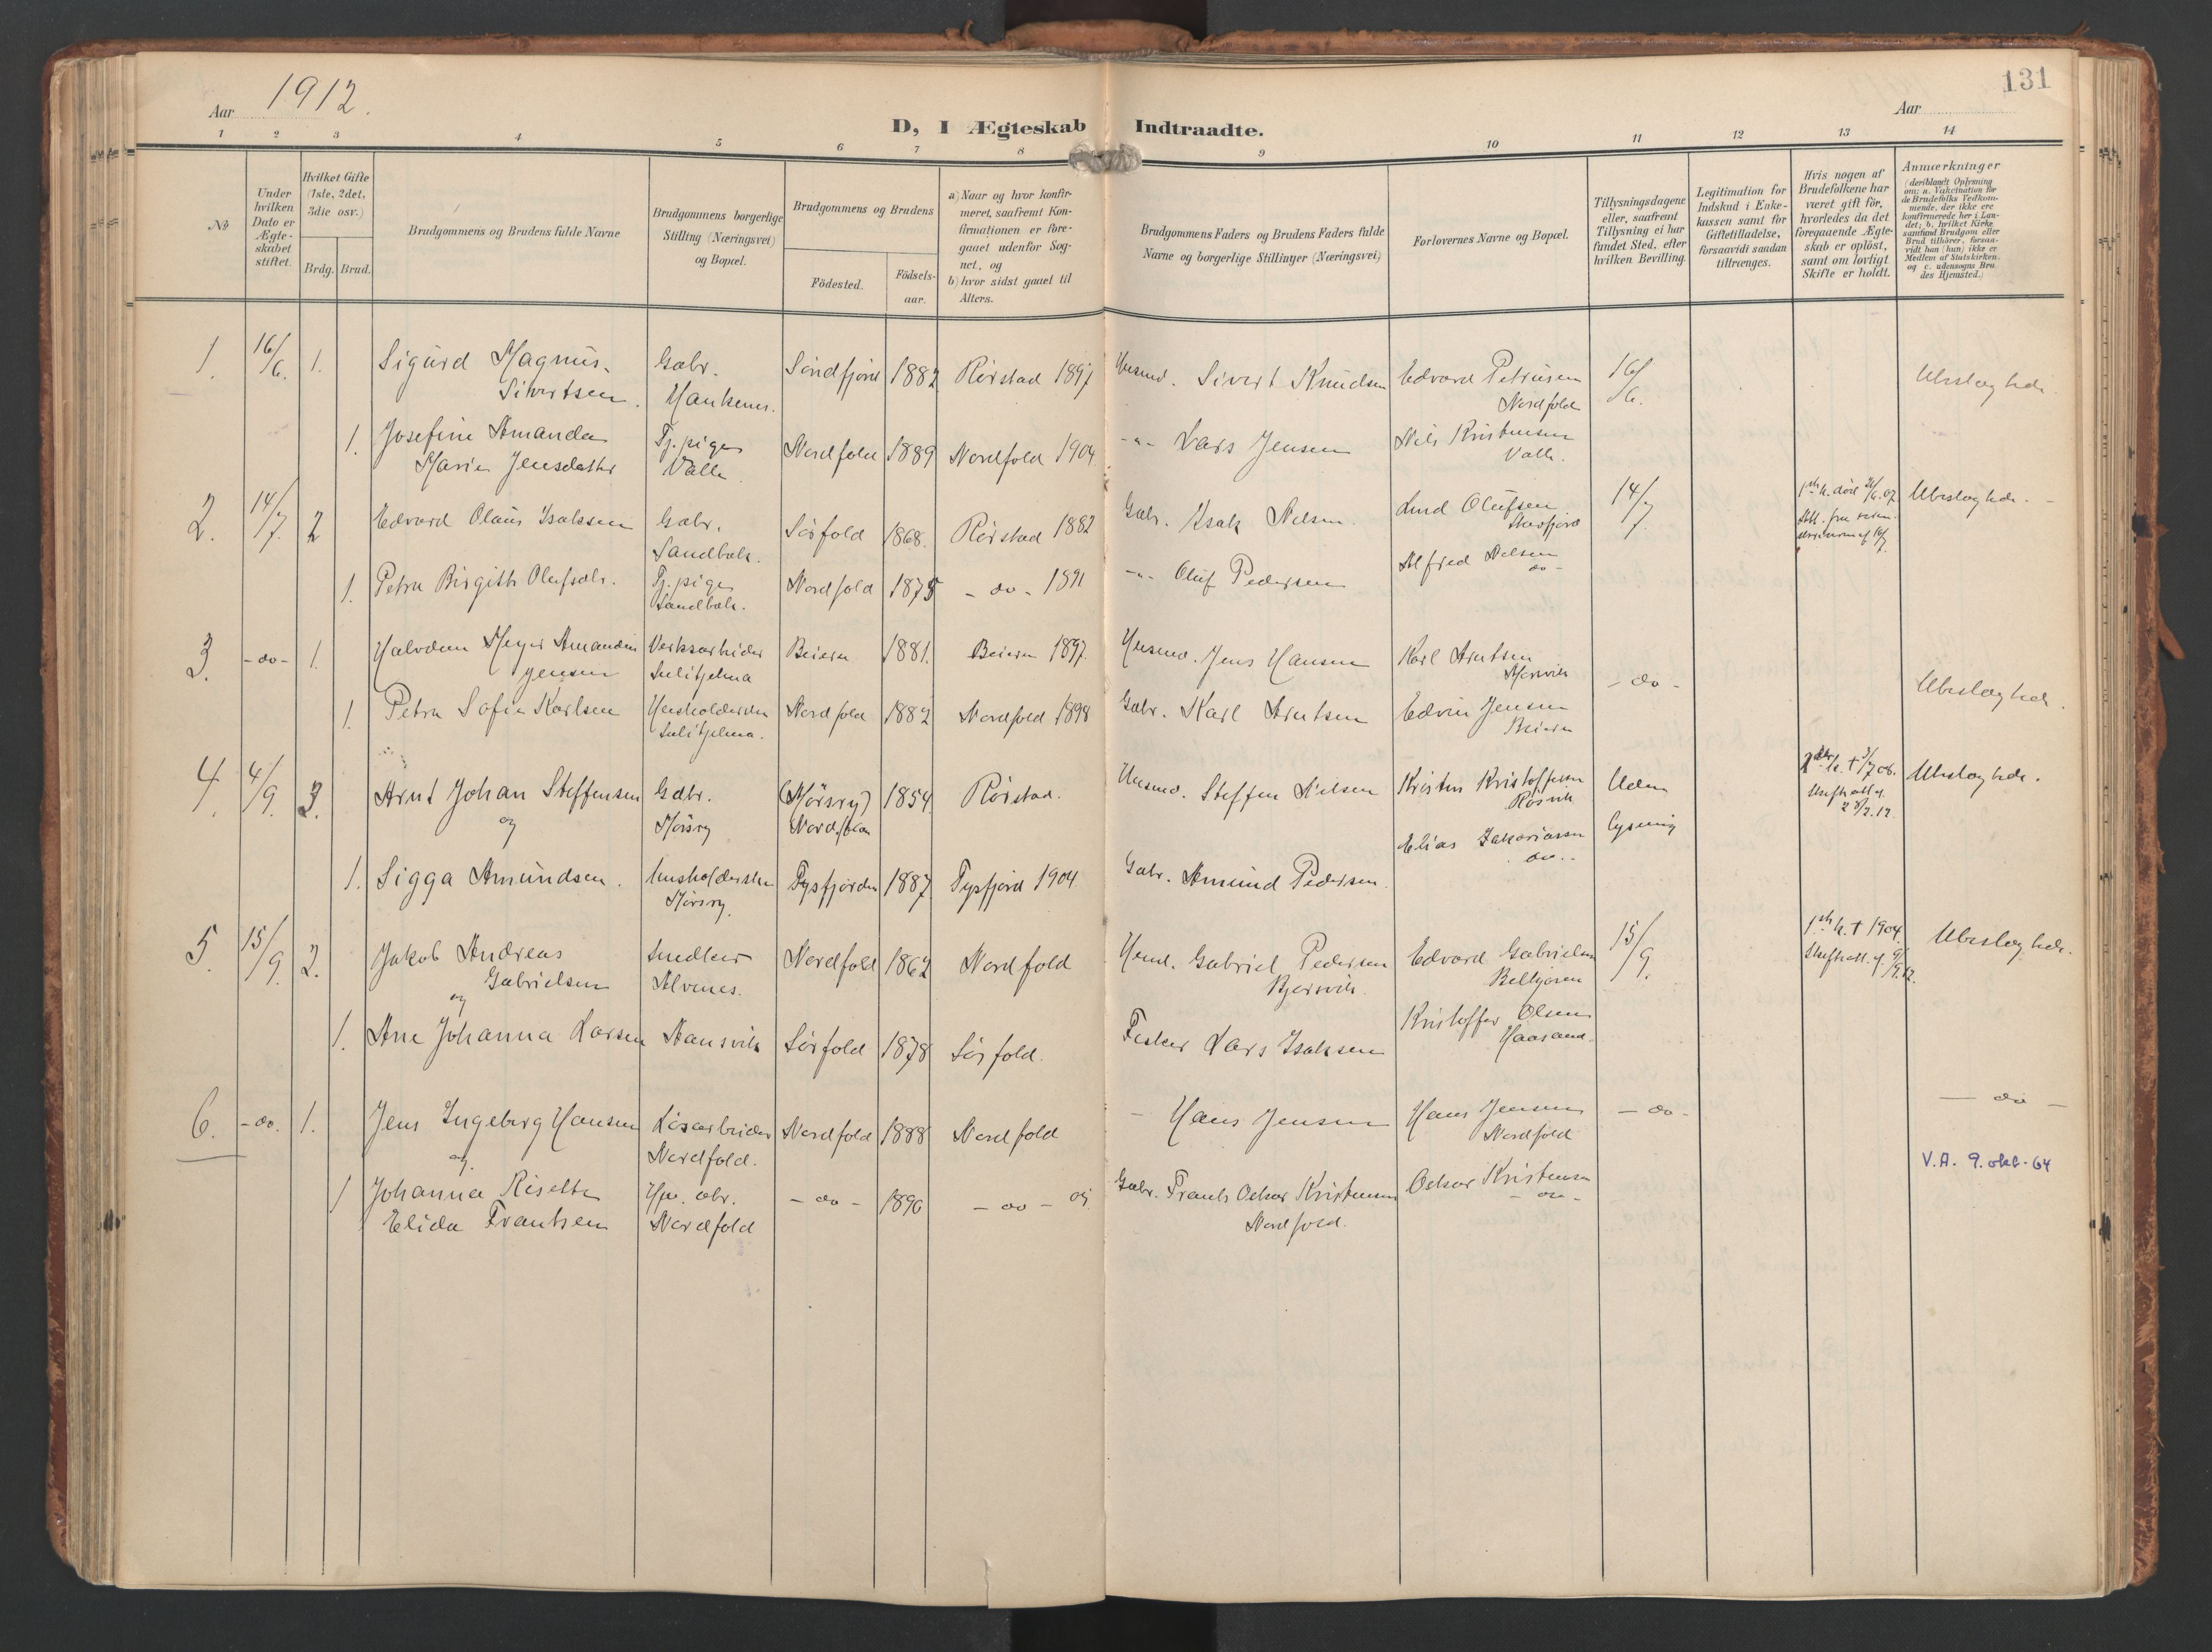 Aar 1912.
131
Aar
D, I Ægteskab Indtraadte.
1 2 3 4 5 6 7 8 9 10 11 12 13 14
No
Under hvilken Dato er Ægte-skabet stiftet.
Hvilket Gifte (1ste, 2det, 3die osv.)
Brdg. Brud.
Brudgommens og Brudens fulde Navne
Brudgommens borgerlige Stilling (Næringsvei) og Bopæl.
Brudgommens og Brudens
Födested.
Födsels-aar.
a) Naar og hvor konfir-meret, saafremt Kon-firmationen er fore-gaaet udenfor Sog-net, og
b) hvor sidst gaaet til Alters.
Brudgommens Faders og Brudens Faders fulde Navne og borgerlige Stillinger (Næringsvei)
Forlovernes Navne og Bopæl.
Tillysningsdagene eller, saafremt Tillysning ei har fundet Sted, efter hvilken Bevilling.
Legitimation for Indskud i Enke-kassen samt for Giftetilladelse, forsaavidt saadan tiltrænges.
Hvis nogen af Brudefolkene har været gift för, hvorledes da det foregaaende Ægte-skab er oplöst, samt om lovligt Skifte er holdt.
Anmærkninger (deriblandt Oplysning om: a. Vakcination for de Brudefolks Vedkom-mende, der ikke ere konfirmerede her i Lan-det; b. hvilket Kirke-samfund Brudgom eller Brud tilhörer, forsaa-vidt han (hun) ikke er Medlem af Statskirken, og c. udensogns Bru-des Hjemsted.)
1. 16/6. 1. Sigurd Magnus Sivertsen. Gabr. Sørdfjord 1882 Rørstad 1897 Husmd. Sivert Knudsen Edvard Petrusen Nordfold 16/6. Ubeslægtede
1. Josefine Amanda Marie Jensdatter Tj. pige Valle Nordfold 1889 Nordfold 1904. -"- Lars Jensen Nils Kristensen Valle.
2. 14/7. 2 Edvard Olaus Isaksen Gabr. Sandbak. Sørfold 1868. Rørstad 1882 Gabr. Isak Nilsen Olufsen 14/7. Ubeslægtede. -
1. Petra Birgith Olufsdtr. Tj. pige Sandbak. Nordfold 1875 - do - 1891 -"- Oluf Pedersen Alfred Nilsen do -
3. - do - 1. Halvdan Meyer Amandus Jensen Verksarbeider Sulitjelma Beiern 1881. Beiern 1897. Husmd. Jens Hansen Karl Arntsen - do - Ubeslægtede.
1. Petra Sofie Karlsen Husholderske Sulitjelma. Nordfold 1882 Nordfold 1898 Gabr. Karl Arntsen Edvin Jensen Beiern
4. 4/9. 3. Arnt Johan Steffensen og Gabr. Mørsry (Mørsry) Nordfold 1854 Rørstad. Husmd. Steffen Nilsen Kristen Kristoffersen Røsvik Uden Ubeslægtede.
1. Sigga Amundsen. husholderske Mørsry. Tysfjorden 1887 Tysfjord 1904 Gabr. Amund Pedersen. Elias Zakariassen do.. lysning
5. 15/9. 2. Jakob Andreas Gabrielsen og Alvenes. Nordfold 1862 Nordfold Husmd. Gabriel Pedersen Edvard Gabrielsen 15/9. 1ste h. † 1904. Ubeslægtede.
1. Ane Johanna Larsen Aansvik Sørfold 1878 Sørfold. Fisker Lars Isaksen Kristoffer Olsen
6. - do. 1. Jens Ingeberg Hansen og. Løsarbeider Nordfold. Nordfold 1888 Nordfold - Hans Jensen Hans Jensen Nordfold - do - - do -
V.A. 9. okt. 64
1 Johanna Risette Elida Frantsen Nordfold - do - 1890 - do - 05 Gabr. Frants Oskar Kristensen Nordfold. Oskar Kristensen - do -